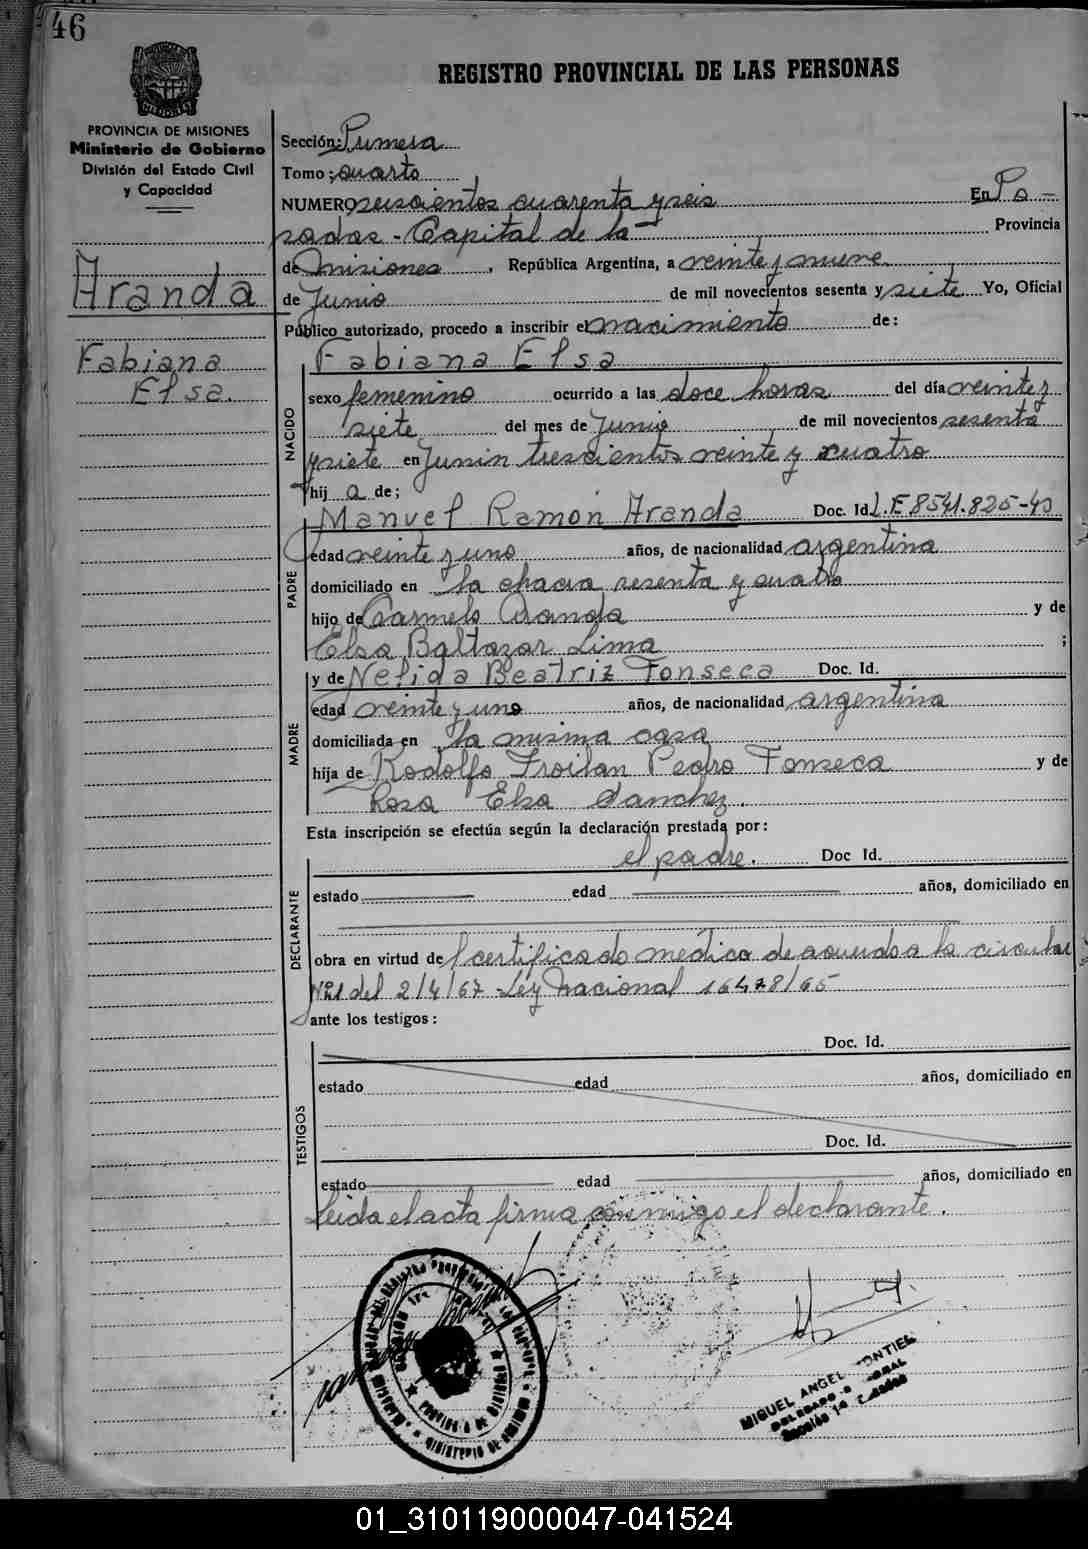 46
REGISTRO PROVINCIAL DE LAS PERSONAS
PROVINCIA DE MISIONES
Ministerio de Gobierno
División del Estado Civil
y Capacidad
Aranda
Fabiana
Elsa.
Sección: Primera
Tomo: cuarto
NUMERO seiscientos cuarenta y seis En Po-
sadas - Capital de la Provincia
de Misiones, República Argentina, a veinte y nueve
de Junio de mil novecientos sesenta y siete Yo, Oficial
Público autorizado, procedo a inscribir el nacimiento de:
NACIDO
Fabiana Elsa
sexo femenino ocurrido a las doce horas del día veinte y
siete del mes de Junio de mil novecientos sesenta
y siete en Junin trescientos veinte y cuatro
hij a de;
PADRE
Manuel Ramon Aranda Doc. Id. L.E 8541.825-
edad veinte y uno años, de nacionalidad argentina
domiciliado en la chacra sesenta y cuatro
hijo de Carmelo Aranda y de
Elsa Baltazar Lima ;
MADRE
y de Nelida Beatriz Fonseca Doc. Id.
edad veinte y uno años, de nacionalidad argentina
domiciliada en la misma casa
hija de Rodolfo Froilan Pedro Fonseca y de
Rosa Elsa Sanchez.
Esta inscripción se efectúa según la declaración prestada por:
DECLARANTE
el padre. Doc Id.
estado edad años, domiciliado en
obra en virtud de l certificado médico de acuerdo a la circular
Nº21 del 2/4/67 - Ley Nacional 16478/65
ante los testigos:
TESTIGOS
Doc. Id.
estado edad años, domiciliado en
Doc. Id.
estado edad años, domiciliado en
Leida el acta firma conmigo el declarante.
MIGUEL ANGEL
01_310119000047-041524